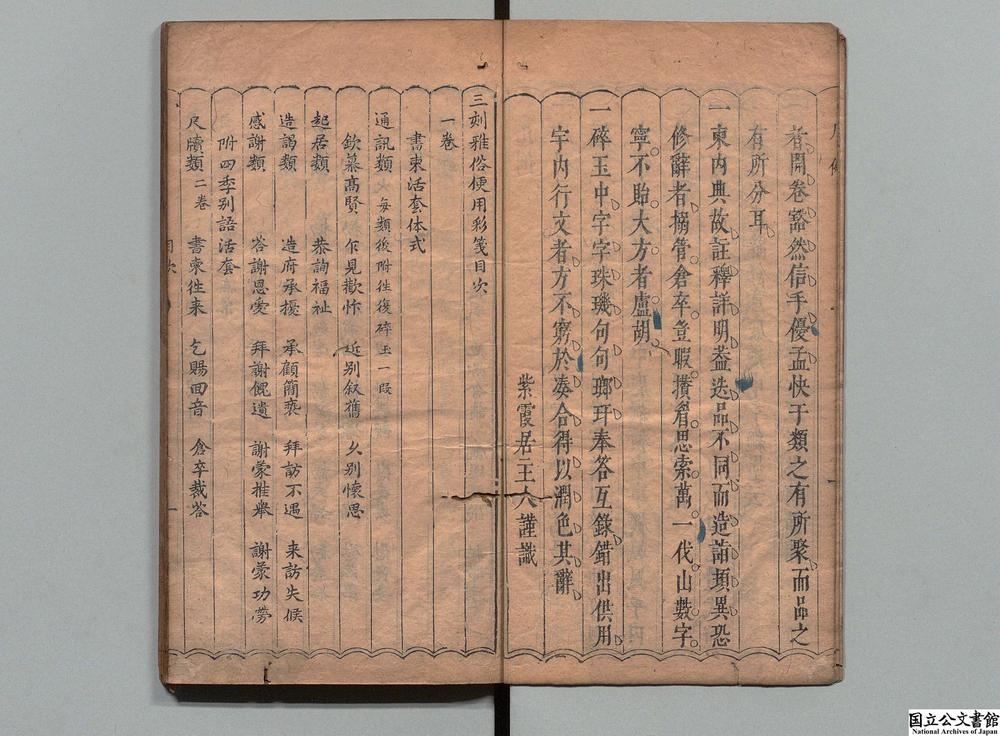 者開卷豁然信手優孟快于類之有所聚而品之
有所分耳
一柬内典故註釋詳明葢迭品不同而造詣頓異恐
修辭者搦管倉卒豈暇攅眉思索萬一代山數字
寧不貽大方者盧胡
一碎玉中字字珠璣句句瑯玕奉答互錄錯出供用
宇内行文者方不窮於凑合得以潤色其辭
紫霞居主人謹識
三刻雅俗便用彩箋目次
一卷
書柬活套体式
通訊類 每類後附徃復碎玉一段
欽慕高賢 乍見歡忻 近別叙舊 久别懷思
起居類 恭詢福祉
造謁類 造府承擾 承顧簡褻 拜訪不遇 来訪失候
感謝類 荅謝恩愛 拜謝餽遺 謝蒙推舉 謝蒙功勞
附四季别語活套
尺牘類 二卷 書柬徃来 乞賜回音 倉卒裁答
目次 一
国立公文書館
National Archives of Japan